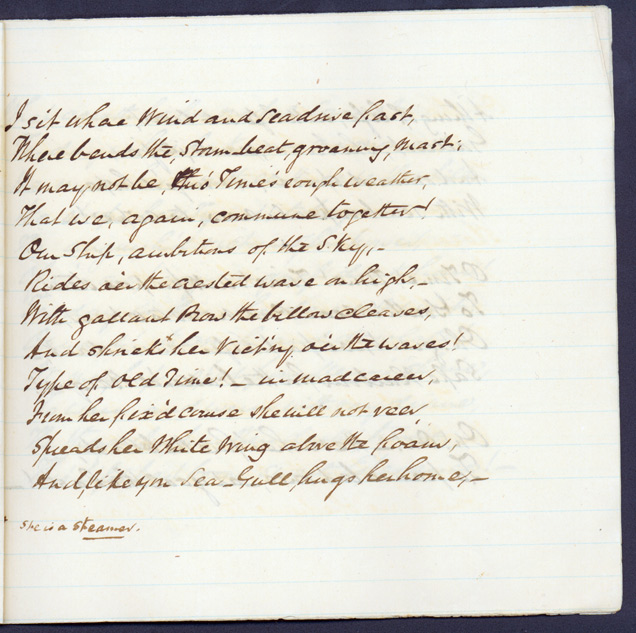 I sit where Wind and Sea drive fast,
Where bends the, storm-beat, groaning, mast;
It may, not be, thro' Time's rough weather,
That we, again, commune together!
Our Ship, ambitious of the Sky,-
Rides o'er the crested wave on high,-
With gallant Prow the billow cleaves,
And shrieks* her Vict'ry o'er the waves!
Type of Old Time! - in mad career,
From her fix'd course she will not veer
Spreads her White Wing above the foam,
And, like yon Sea-Gull, hugs her home,-
She is a Steamer.